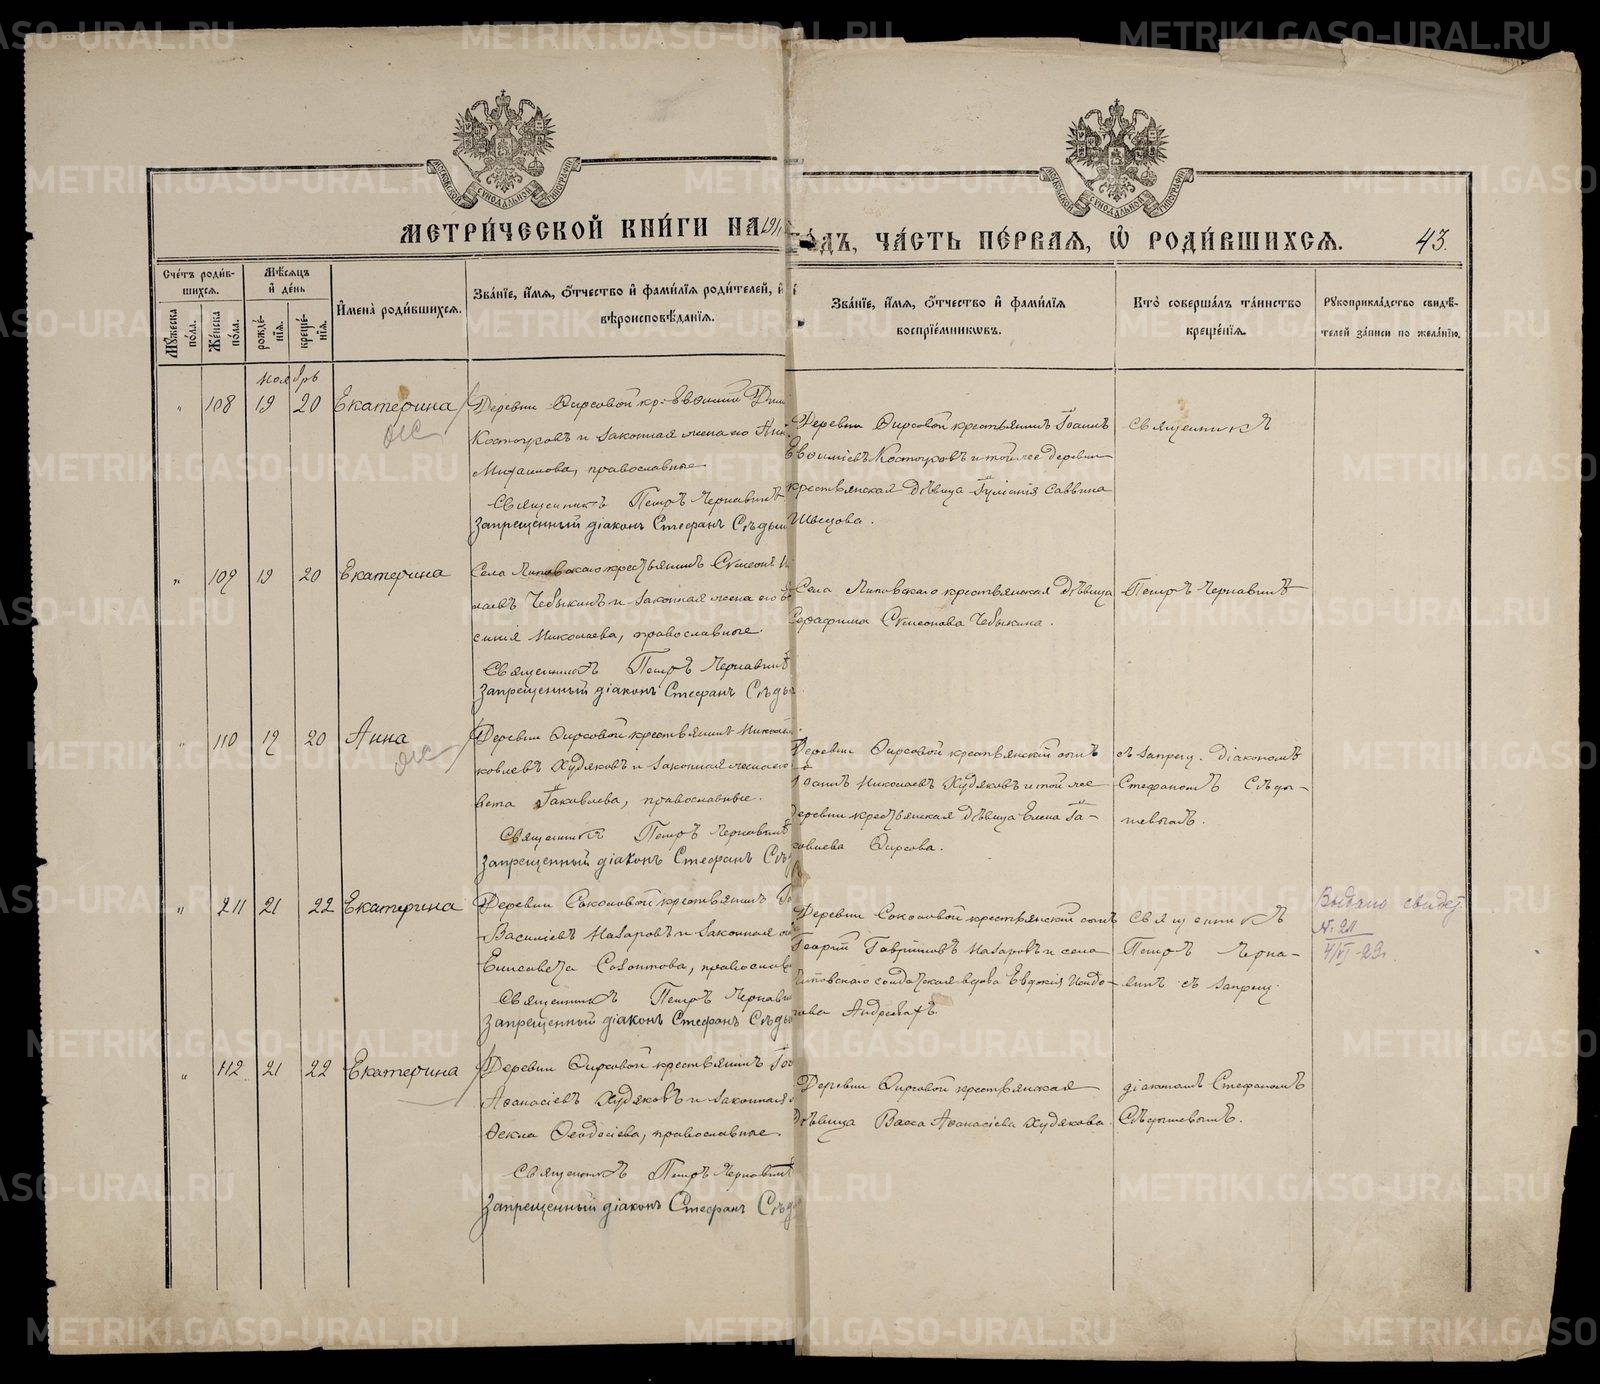 МЕТРИ́ЧЕСКОЙ КНИ́ГИ НА 191 ГО́ДЪ, ЧА́СТЬ ПЕ́РВАЯ, Ѡ РОДИ́ВШИХСЯ.
43.
Сче́тъ роди́вшихся.
Му́жеска по́ла.
Же́нска по́ла.
Мѣ́сяцъ и де́нь
рожде́нїя.
креще́нїя.
И҆мена̀ роди́вшихся.
Зва́нїе, и҆́мя, ѻ҆́тчество и҆ фами́лїя роди́телей, и҆
вѣроисповѣ́данїя.
Зва́нїе, и҆́мя, ѻ҆́тчество и҆ фами́лїя
воспрїе́мникѡвъ.
Кто̀ соверша́лъ та́инство
креще́нїя.
Рукоприкла́дство свидѣ́-
телей за́писи по жела́нїю.
Ноябрь
" 108 19 20 Екатерина
Деревни Фирсовой кр. Евѳимій
Костоусовъ и законная жена его
Михаилова, православные
Священникъ Петръ Чернавинъ
Запрещенный діаконъ Стефанъ
Деревни Фирсовой крестьянинъ Іоаннъ
Евѳиміевъ Костоусовъ и той же деревни
крестьянская дѣвица Іуліанія Саввина
Швецова.
Священникъ
" 109 19 20 Екатерина
Села Липовскаго крестьянинъ Симеонъ
лаевъ Чебыкинъ и законная жена его
синія Николаева, православные.
Священникъ Петръ Чернавинъ
Запрещенный діаконъ Стефанъ
Села Липовскаго крестьянская дѣвица
Серафима Симеонова Чебыкина.
Петръ Чернавинъ
" 110 19 20 Анна
Деревни Фирсовой крестьянинъ Николай
ковлевъ Худяковъ и законная жена его
вета Іаковлева, православные.
Священникъ Петръ Чернавинъ
Запрещенный діаконъ Стефанъ
Деревни Фирсовой крестьянскій сынъ
Іоаннъ Николаевъ Худяковъ и той же
деревни крестьянская дѣвица Елена Іа-
ковлева Фирсова.
съ запрещ. діакономъ
Стефаномъ Сѣды-
шевымъ.
" 211 21 22 Екатерина
Деревни Соколовой крестьянинъ
Василіевъ Назаровъ и законная
Елисавета Созонтова, православ
Священникъ Петръ Чернавин
Запрещенный діаконъ Стефанъ
Деревни Соколовой крестьянскій сынъ
Георгій Гавріиловъ Назаровъ и села
Липовскаго солдатская вдова Евдокія Исидо-
рова
Священникъ
Петръ Черна-
винъ съ запрещ.
Выдано свидет
№ 211
4/VI-23г.
" 112 21 22 Екатерина
Деревни Фирсовой крестьянинъ
Аѳанасіевъ Худяковъ и законная
Ѳекла Ѳеодосіева, православные.
Священникъ Петръ Чернавинъ
Запрещенный діаконъ Стефанъ
Деревни Фирсовой крестьянская
дѣвица Васса Аѳанасіева Худякова.
діакономъ Стефаномъ
Сѣдышевымъ.